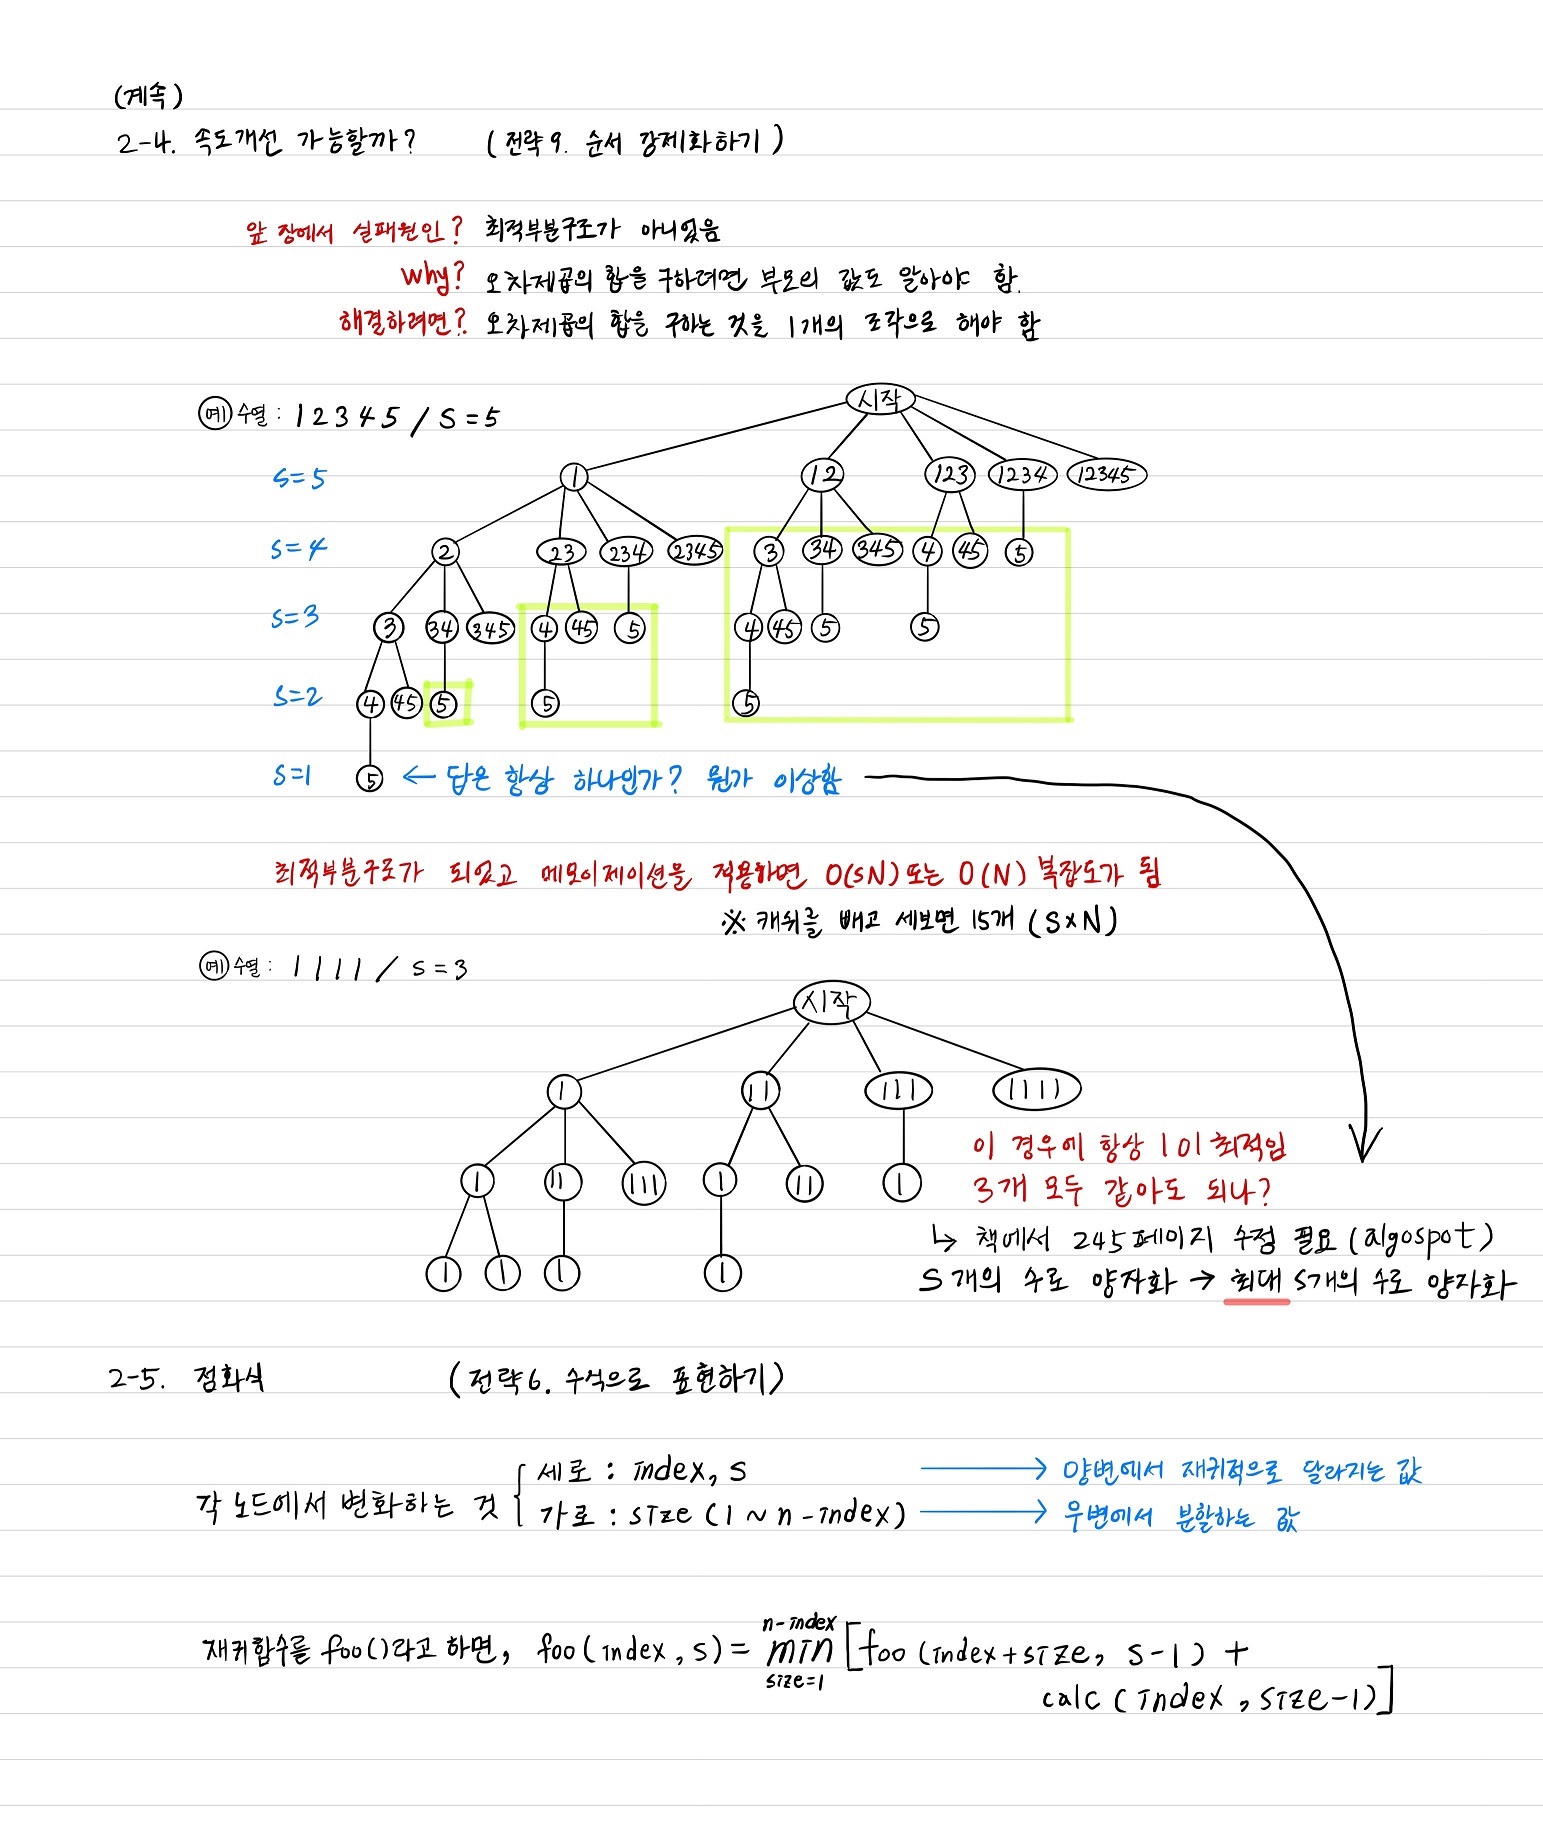 (계속)
2-4. 속도개선 가능할까? (전략 9. 순서 강제화하기)
앞 장에서 실패원인? 최적부분구조가 아니었음
why? 오차제곱의 합을 구하려면 부모의 값도 알아야 함.
해결하려면? 오차제곱의 합을 구하는 것을 1개의 조각으로 해야 함
시작
예 수열 : 1 2 3 4 5 / S = 5
S=5 1 12 123 1234 12345
S=4 2 23 234 2345 3 34 345 4 45 5
S=3 3 34 345 4 45 5 4 45 5 5
S=2 4 45 5 5 5
S=1 5 ← 답은 항상 하나인가? 뭔가 이상함
최적부분구조가 되었고 메모이제이션을 적용하면 O(SN) 또는 O(N) 복잡도가 됨
※ 캐쉬를 빼고 세보면 15개 (S×N)
예 수열 : 1 1 1 1 / S = 3
시작
1 11 111 1111
이 경우에 항상 1이 최적임
1 11 111 1 11 1
3개 모두 같아도 되나?
↳ 책에서 245페이지 수정 필요 (algospot)
1 1 1 1
S개의 수로 양자화 → 최대 S개의 수로 양자화
2-5. 점화식 (전략 6. 수식으로 표현하기)
각 노드에서 변화하는 것
세로 : index, S → 양변에서 재귀적으로 달라지는 값
가로 : size (1 ~ n-index) → 우변에서 분할하는 값
n-index
재귀함수를 foo()라고 하면, foo(index, S) = min [foo(index+size, S-1) +
size=1
calc(index, size-1)]